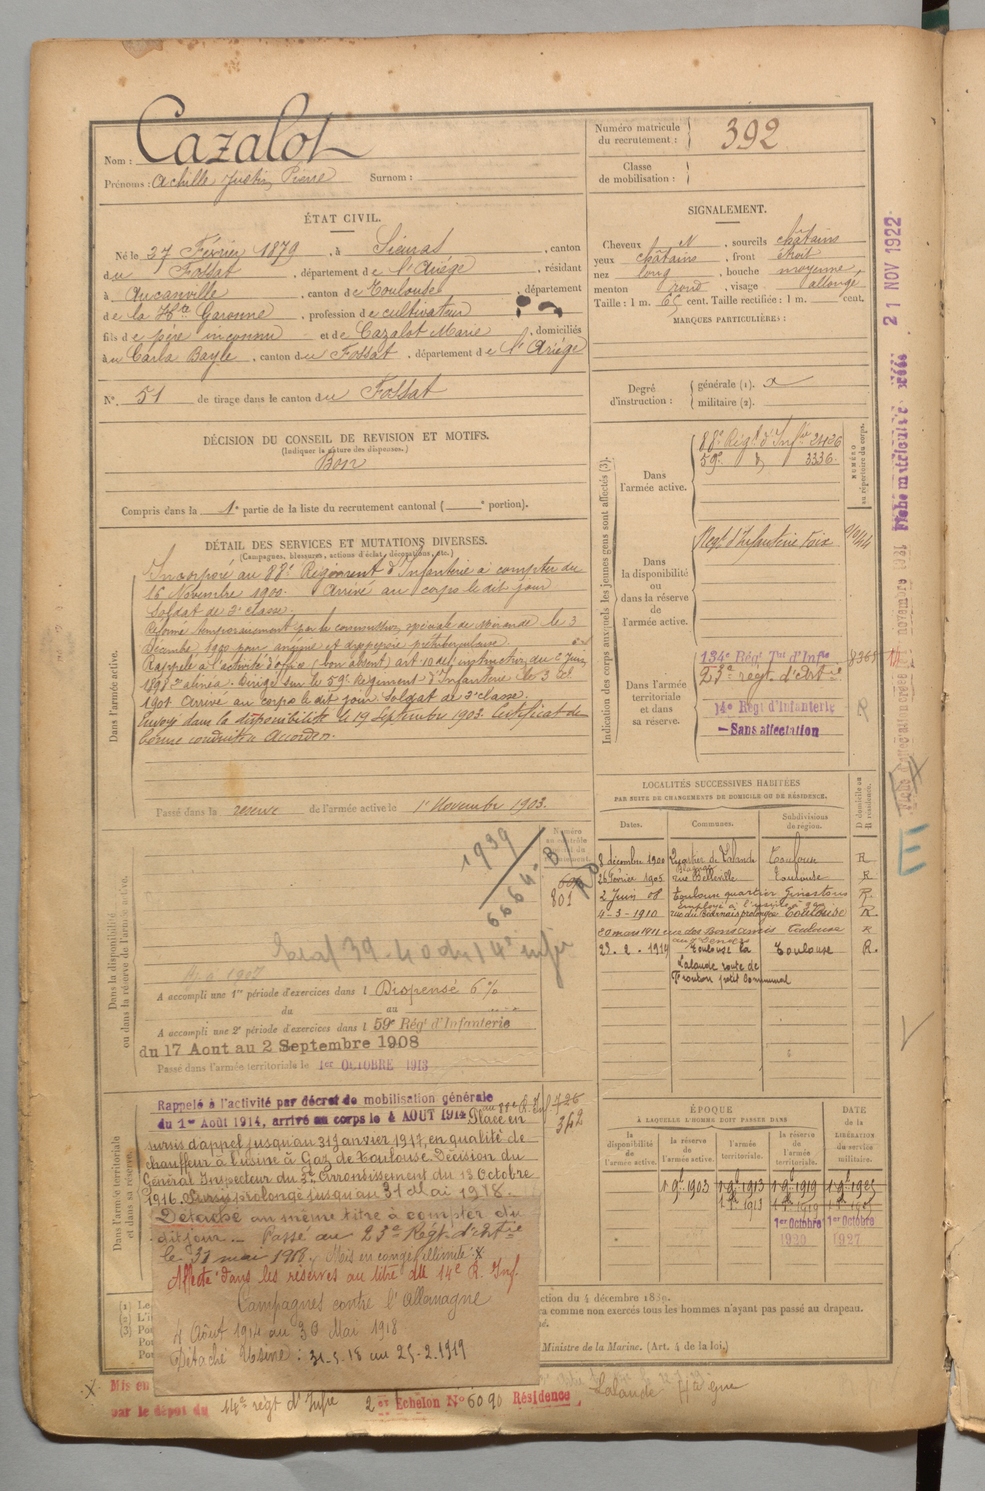 Nom : Cazalot
Prénoms : Achille Justin Pierre Surnom :
Numéro matricule du recrutement : 392
Classe de mobilisation :
ÉTAT CIVIL.
Né le 27 Février 1879, à Sieuras, canton
du Fossat, département de l'Ariège, résidant
à Aucamville, canton de Toulouse, département
de la Hte Garonne, profession de cultivateur
fils de père inconnu et de Cazalot Marie, domiciliés
à Carla Bayle, canton du Fossat, département de l'Ariège
N° 51 de tirage dans le canton du Fossat
SIGNALEMENT.
Cheveux N, sourcils châtains
yeux châtains, front étroit
nez long, bouche moyenne
menton rond, visage allongé
Taille : 1 m. 65 cent. Taille rectifiée : 1 m. cent.
MARQUES PARTICULIÈRES :
Degré d'instruction : générale (1). x
militaire (2).
DÉCISION DU CONSEIL DE REVISION ET MOTIFS.
(Indiquer la nature des dispenses.)
Bon
Compris dans la 1e partie de la liste du recrutement cantonal ( e portion).
DÉTAIL DES SERVICES ET MUTATIONS DIVERSES.
(Campagnes, blessures, actions d'éclat, décorations, etc.)
Dans l'armée active.
Incorporé au 88e Régiment d'Infanterie à compter du
16 Novembre 1900. Arrivé au corps le dit jour
Soldat de 2e classe.
Réformé temporairement par la commission spéciale de Mirande le 3
décembre 1900 pour
Rappelé à l'activité d'office (bon absent) art 10 de l'instruction du 2 Juin
1898 2e alinéa. Dirigé sur le 59e Régiment d'Infanterie le 3
1901 Arrivé au corps le dit jour Soldat de 2e classe.
Envoyé dans la disponibilité le 19 Septembre 1903. Certificat de
bonne conduite Accordé.
Passé dans la réserve de l'armée active le 1er Novembre 1903.
Indication des corps auxquels les jeunes gens sont affectés (3).
NUMÉRO au répertoire du corps.
Dans l'armée active.
88e Régt d'Infie 2436
59e d° 3336
Dans la disponibilité ou dans la réserve de l'armée active.
Régt d'Infanterie Foix
Dans l'armée territoriale et dans sa réserve.
134e Rég Tal d'Infie
23e régt d'Artie
14e Régt d'Infanterie R
- Sans affectation
21 NOV 1922
LOCALITÉS SUCCESSIVES HABITÉES
PAR SUITE DE CHANGEMENTS DE DOMICILE OU DE RÉSIDENCE.
Dates. Communes. Subdivisions de région. D domicile ou R résidence.
8 décembre 1900 Quartier de Lalande Toulouse R
26 Février 1905 rue Belleville Toulouse R
2 Juin 08 Toulouse quartier Ginestous R.
4-3-1910 rue du Béarnais prolongée Toulouse R.
20 mars 1911 rue des Bons amis Toulouse R
23.2.1914 Toulouse la Toulouse R.
Lalande route de
Fronton petit Communal
Dans la disponibilité ou dans la réserve de l'armée active.
1939
6664
801
Classé 39-40 du 14e infie
A accompli une 1re période d'exercices dans l Dispensé 6 %
du au
A accompli une 2e période d'exercices dans l 59e Régt d'Infanterie
du 17 Aout au 2 Septembre 1908
Passé dans l'armée territoriale le 1er OCTOBRE 1913
Dans l'armée territoriale et dans sa réserve.
Rappelé à l'activité par décret de mobilisation générale
du 1er Août 1914, arrivé au corps le 4 AOUT 1914 Placé en
sursis d'appel jusqu'au 31 Janvier 1917, en qualité de
chauffeur à l'usine à Gaz de Toulouse. Décision du
Général Inspecteur du 3e Arrondissement du 13 Octobre
1916. Sursis prolongé jusqu'au 31 Mai 1918.
Détaché au même titre à compter du
dit jour. — Passé au 23e Régt d'Artie
le 31 mai 1918. Mis en congé illimité
Affecté dans les réserves au titre du 14e R. Inf.
Campagnes contre l'Allemagne
4 Août 1914 au 30 Mai 1918
Détaché Usine : 31-5-18 au 25-2-1919
362
ÉPOQUE
À LAQUELLE L'HOMME DOIT PASSER DANS
la disponibilité de l'armée active. la réserve de l'armée active. l'armée territoriale. la réserve de l'armée territoriale.
DATE de la LIBÉRATION du service militaire.
1 9e 1903 1 9e 1913 1 9e 1919 1 9e 1925
1er Octobre 1920 1er Octobre 1927
ction du 4 décembre 1889.
ra comme non exercés tous les hommes n'ayant pas passé au drapeau.
Ministre de la Marine. (Art. 4 de la loi.)
Mis en
par le dépot du 14e régt d'Infie 2e Echelon N° 6090 Résidence
Lalande